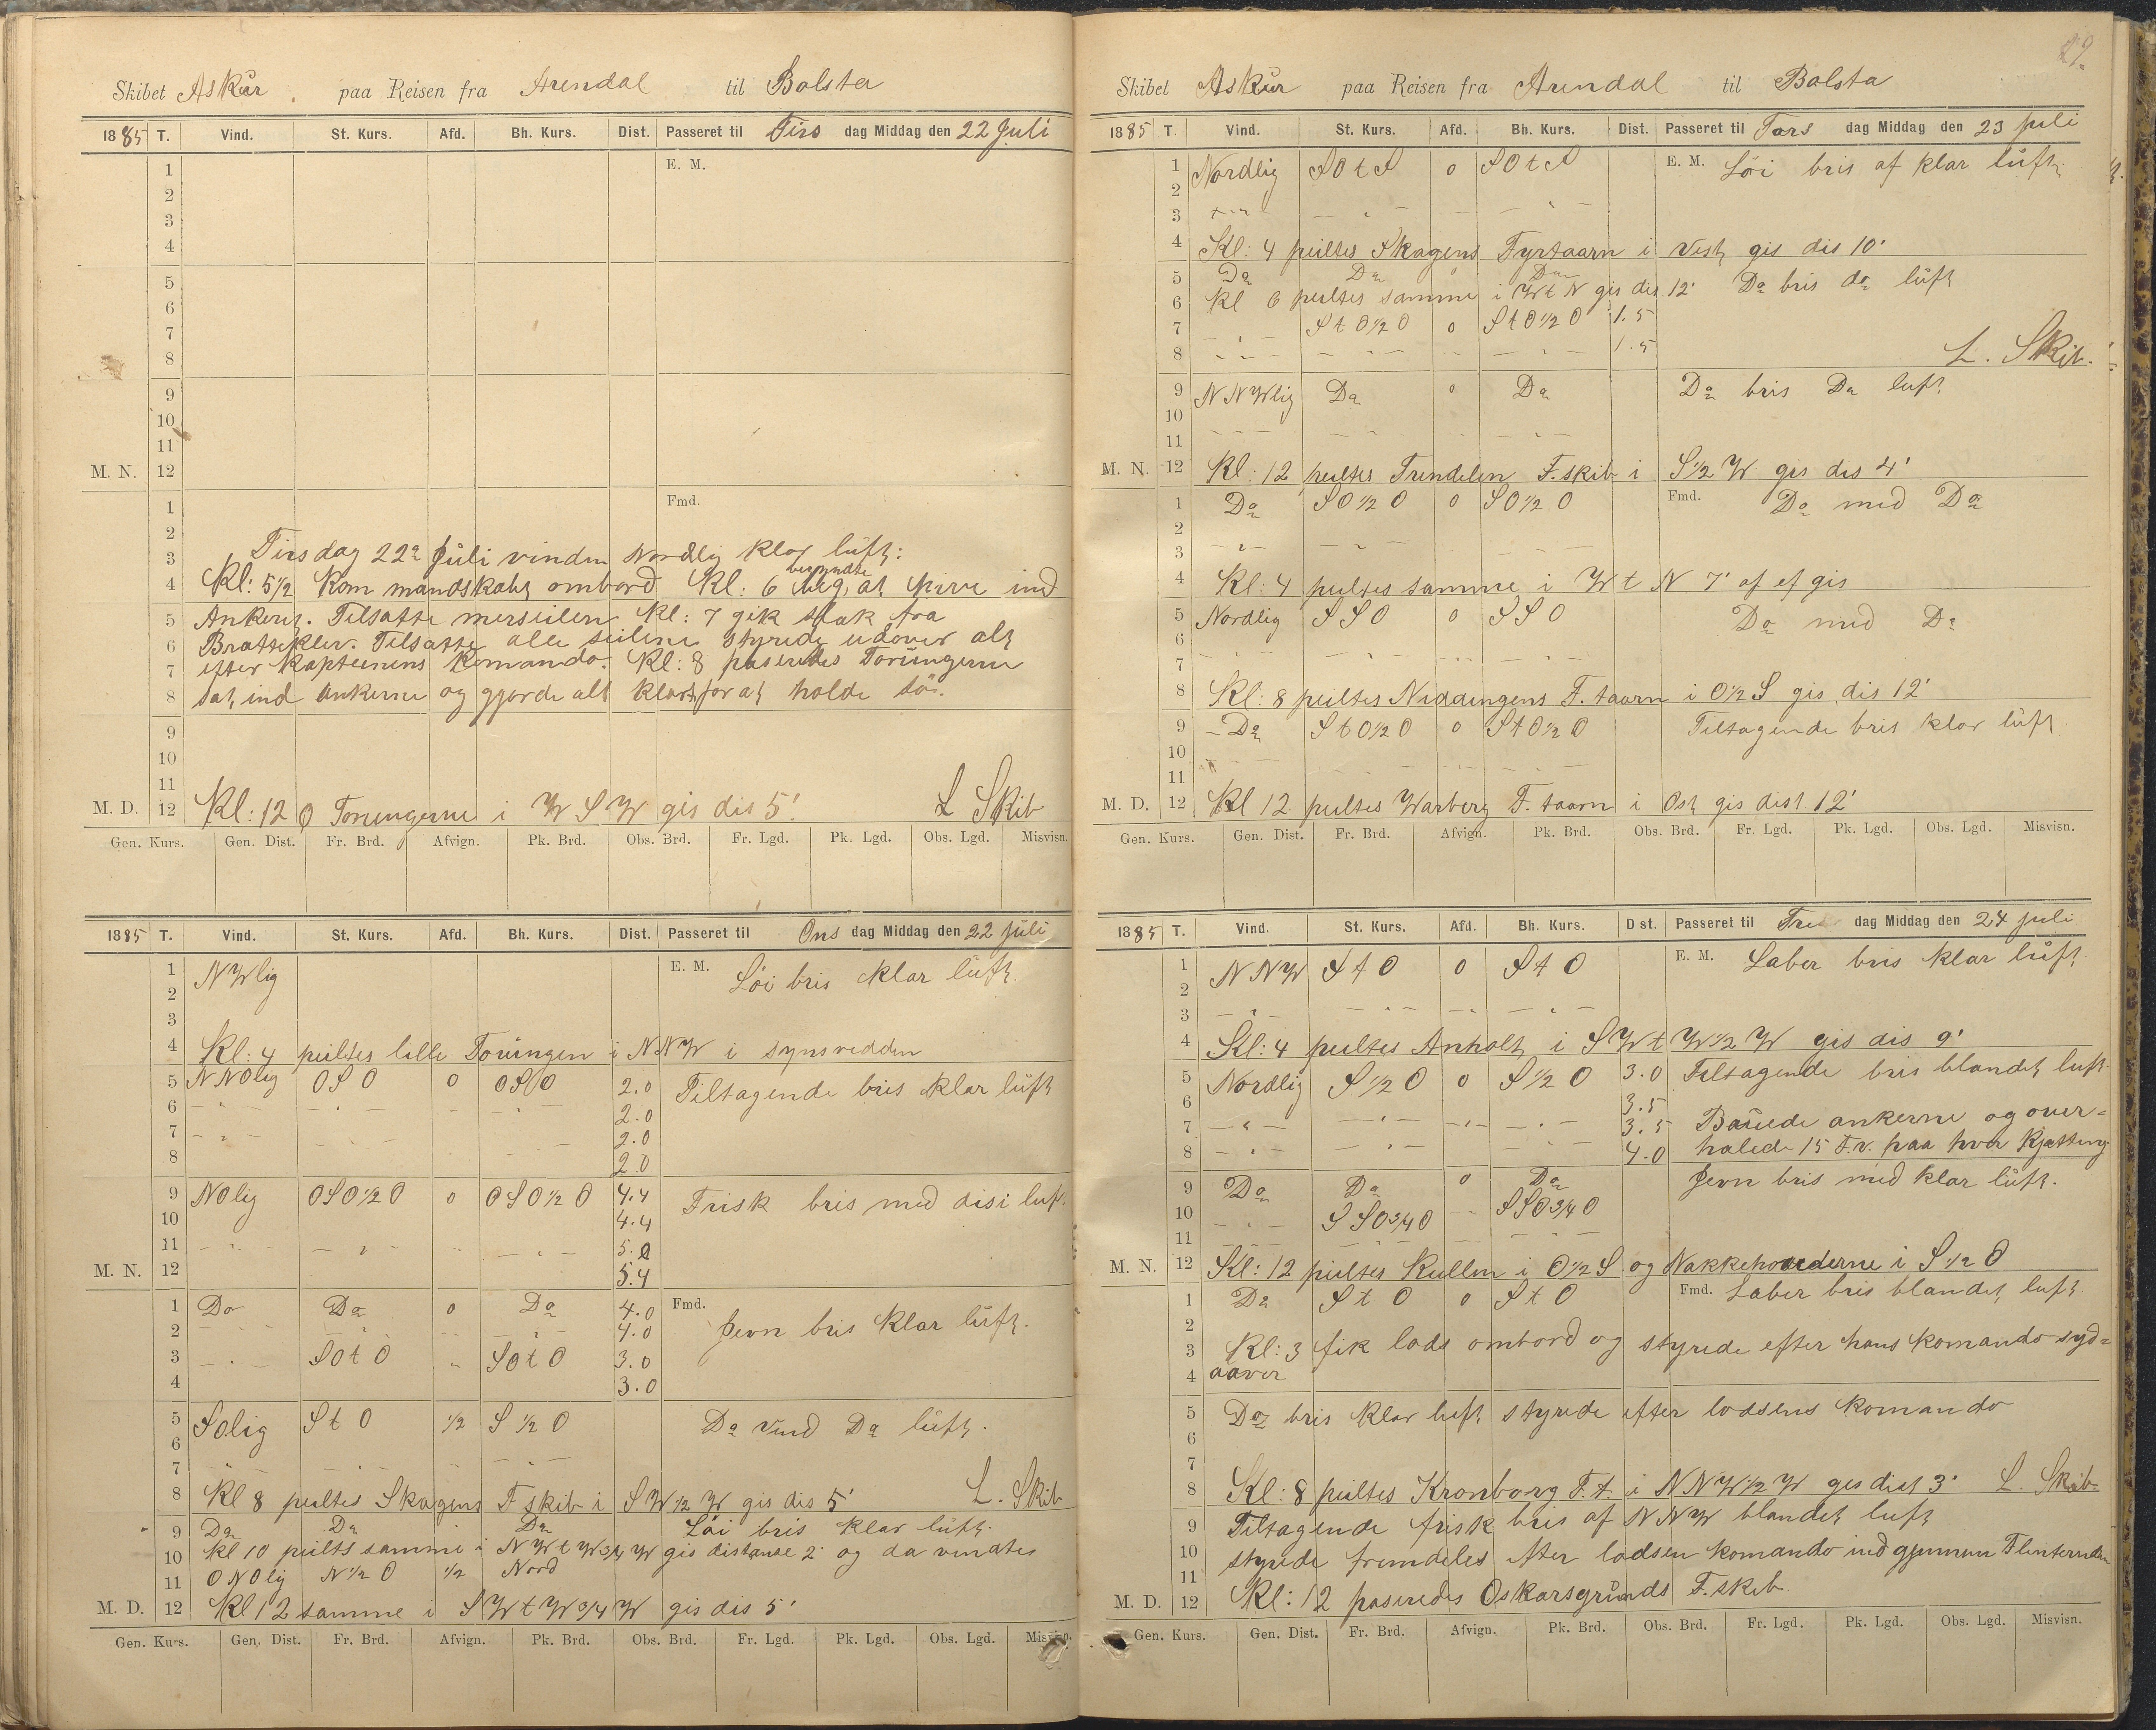 Skibet Askur paa Reisen fra Arendal til Bolsta
1885 T. Vind. St. Kurs. Afd. Bh. Kurs. Dist. Passeret til Tirs dag Middag den 22 Juli
1 E. M.
2
3
4
5
6
7
8
9
10
11
M. N. 12
1 Fmd.
2 Tirsdag 22de Juli vinden Nordlig klar lúft:
3 Kl: 5½ kom mandskabet ombord Kl: 6 begyndte at hive ind
4
5 Ankeret. Tilsatte merseilen. Kl: 7 gik slak fra
6 Brattekler. Tilsatte alle seilene styrede udover alt
7 efter kapteinens komando. Kl: 8 paseredes Torúngerne
8 sat ind ankerne og gjorde alt klart for at holde sö.
9
10
11
M. D. 12 Kl: 12 Torungerne i W S W gis dis 5' L Skib
Gen. Kurs. Gen. Dist. Fr. Brd. Afvign. Pk. Brd. Obs. Brd. Fr. Lgd. Pk. Lgd. Obs. Lgd. Misvisn.
1885 T. Vind. St. Kurs. Afd. Bh. Kurs. Dist. Passeret til Ons dag Middag den 22 Juli
1 NWlig E. M. Löi bris klar lúft.
2
3
4 Kl: 4 peiltes lille Torúngen i NNW i synsvedden
5 NNOlig OSO 0 OSO 2.0 Tiltagende bris klar lúft
6 - " - 2.0
7 - " - 2.0
8 2.0
9 NOlig OSO½O 0 OSO½O 4.4 Frisk bris med disi luft
10 4.4
11 - " - 5.0
M. N. 12 5.4
1 Do Do 0 Do 4.0 Fmd. Jevn bris klar lúft.
2 4.0
3 - " - SOtO " SOtO 3.0
4 3.0
5 SOlig StO ½ S½O Do vind Do lúft.
6
7
8 Kl 8 peiltes Skagens F. skib i SW½W gis dis 5' L. Skib
9 Do Do Do Löi bris klar lúft.
10 Kl 10 peilts samme i NWtW¾W gis distanse 2' og da vendtes
11 ONOlig N½O ½ Nord
M. D. 12 Kl 12 samme i SWtW¾W gis dis 5'
Gen. Kurs. Gen. Dist. Fr. Brd. Afvign. Pk. Brd. Obs. Brd. Fr. Lgd. Pk. Lgd. Obs. Lgd. Misvisn.
29.
Skibet Askúr paa Reisen fra Arendal til Bolsta
1885 T. Vind. St. Kurs. Afd. Bh. Kurs. Dist. Passeret til Tors dag Middag den 23 Juli
1 Nordlig SOtS 0 SOtS E. M. Löi bris af klar lúft.
2
3
4 Kl: 4 peiltes Skagens Fyrtaarn i Vest gis dis 10'
5 Do Do 0 Do
6 Kl 6 peiltes samme i WtN gis dis 12' Do bris do lúft
7 StO½O 0 StO½O 1.5
8 - " - 1.5 L. Skib.
9 NNWlig Do 0 Do Do bris Do luft
10
11
M. N. 12 Kl: 12 peiltes Trindelen F. skib i S½W gis dis 4'
1 Do SO½O 0 SO½O Fmd. Do med Do
2
3
4 Kl: 4 peiltes samme i WtN 7' af ef gis
5 Nordlig SSO 0 SSO Do med Do
6
7
8 Kl: 8 peiltes Niddingens F. taarn i O½S gis dis 12'
9 Do StO½O 0 StO½O Tiltagende bris klar lúft
10
11
M. D. 12 Kl 12 peiltes Warberg F. taarn i Ost gis dist 12'
Gen. Kurs. Gen. Dist. Fr. Brd. Afvign. Pk. Brd. Obs. Brd. Fr. Lgd. Pk. Lgd. Obs. Lgd. Misvisn.
1885 T. Vind. St. Kurs. Afd. Bh. Kurs. Dist. Passeret til Fre dag Middag den 24 Juli
1 NNW StO 0 StO E. M. Laber bris klar lúft
2
3
4 Kl: 4 peiltes Anholt i SWtW½W gis dis 9'
5 Nordlig S½O 0 S½O 3.0 Tiltagende bris blandet luft.
6 3.5
7 - " - 3.5 Bauede ankerne og over-
8 - " - 4.0 halede 15 F.v. paa hver Kjætting
9 Do Do 0 Do Jevn bris med klar lúft.
10 SSO¾O SSO¾O
11
M. N. 12 Kl: 12 peiltes Kullen i O½S og Nakkehovederne i S½O
1 Do StO 0 StO Fmd. Laber bris blandet luft.
2
3 Kl: 3 fik lods ombord og styrede efter hans komando syd-
4 aaver
5 Do bris klar luft styrede efter lodsens komando
6
7
8 Kl: 8 peiltes Kronborg F. t. i NNW½W ges dist 3' L. Skib
9 Tiltagende frisk bris af NNW blandet luft
10 styrede fremdeles efter lodsen komando ind gjennem Flinternden
11
M. D. 12 Kl: 12 paseredes Oskarsgrúnds F. skib.
Gen. Kurs. Gen. Dist. Fr. Brd. Afvign. Pk. Brd. Obs. Brd. Fr. Lgd. Pk. Lgd. Obs. Lgd. Misvisn.